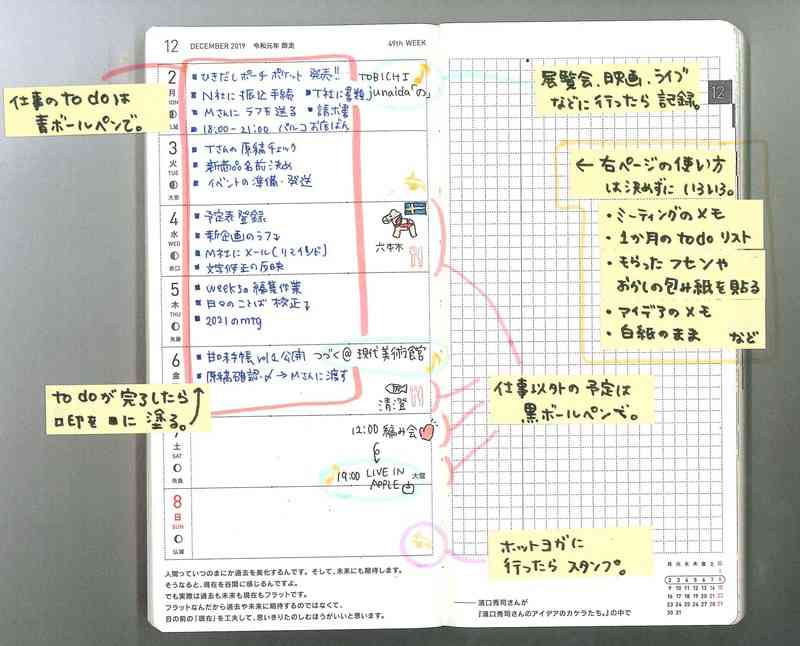 12 DECEMBER 2019 令和元年 師走 49th WEEK
仕事のto doは
青ボールペンで。
2
月
MON
ひきだしポーチ ポケット 発売!!
TOBICHI
N社に振込手続
T社に書類
junaida「の」
Mさんにラフを送る
請求書
18:00-21:00 パルコお店ばん
展覧会、映画、ライブ
などに行ったら 記録。
12
3
火
TUE
大安
Tさんの原稿チェック
新商品名前決め
イベントの準備・発送
← 右ページの使い方
は決めずに いろいろ。
・ミーティングのメモ
・1か月のto doリスト
・もらったフセンや
おかしの包み紙を貼る
・アイデアのメモ
・白紙のまま など
4
水
WED
赤口
予定表登録
新企画のラフ
M社にメール(リマインド)
文字修正の反映
六本木
5
木
THU
先勝
weeksの編集作業
日々のことば 校正
2021のmtg
6
金
甘口手帳vol.2公開
つづく@現代美術館
原稿確認 → Mさんに渡す
清澄
to doが完了したら
□印を■に塗る。
仕事以外の予定は
黒ボールペンで。
7
土
SAT
先負
12:00 編み会
19:00 LIVE IN
APPLE
大宮
8
日
SUN
仏滅
ホットヨガに
行ったら スタンプ。
人間っていつのまにか過去を美化するんです。そして、未来にも期待します。
そうなると、現在を谷間に感じるんですよ。
でも実際は過去も未来も現在もフラットです。
フラットなんだから過去や未来に期待するのではなくて、
目の前の「現在」を工夫して、思いきりたのしむほうがいいと思います。
―― 濱口秀司さんが
『濱口秀司さんのアイデアのカケラたち。』の中で
月 火 水 木 金 土 日
1
2 3 4 5 6 7 8
9 10 11 12 13 14 15
16 17 18 19 20 21 22
23 24 25 26 27 28 29
30 31